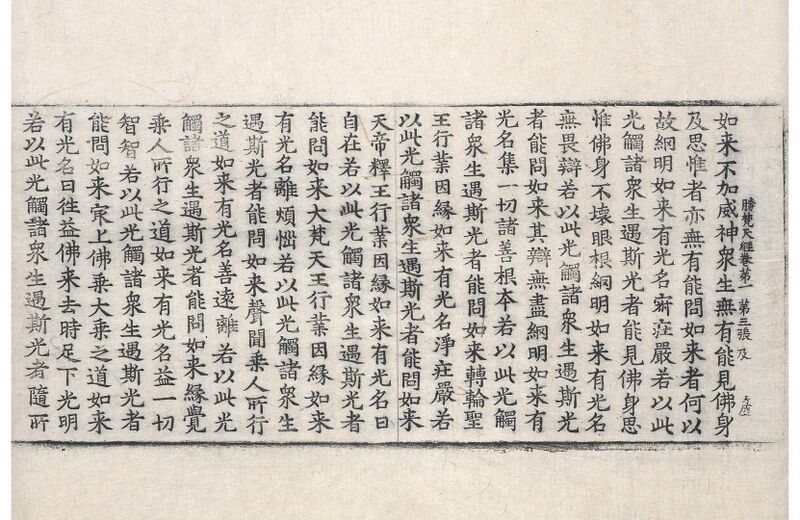 勝梵天經卷第一 第三張 及
如来不加威神衆生無有能見佛身
及思惟者亦無有能問如来者何以
故網明如来有光名寂莊嚴若以此
光觸諸衆生遇斯光者能見佛身思
惟佛身不壞眼根網明如来有光名
無畏辯若以此光觸諸衆生遇斯光
者能問如来其辯無盡網明如来有
光名集一切諸善根本若以此光觸
諸衆生遇斯光者能問如来轉輪聖
王行業因緣如来有光名淨莊嚴若
以此光觸諸衆生遇斯光者能問如来
天帝釋王行業因緣如来有光名曰
自在若以此光觸諸衆生遇斯光者
能問如来大梵天王行業因緣如来
有光名離煩惱若以此光觸諸衆生
遇斯光者能問如来聲聞乘人所行
之道如来有光名善遠離若以此光
觸諸衆生遇斯光者能問如来緣覺
乘人所行之道如来有光名益一切
智智若以此光觸諸衆生遇斯光者
能問如来㝡上佛乘大乘之道如来
有光名曰往益佛来去時足下光明
若以此光觸諸衆生遇斯光者隨所